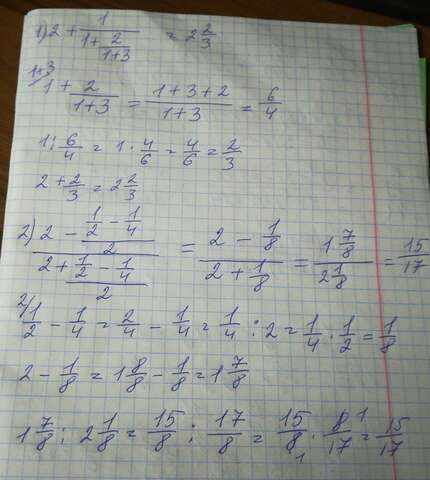 1) 2 + 1/(1 + 2/(1+3)) = 2 2/3
1+3
1 + 2/(1+3) = (1+3+2)/(1+3) = 6/4
1 : 6/4 = 1 · 4/6 = 4/6 = 2/3
2 + 2/3 = 2 2/3
2) (2 - (1/2 - 1/4)/2)/(2 + (1/2 - 1/4)/2) = (2 - 1/8)/(2 + 1/8) = (1 7/8)/(2 1/8) = 15/17
2) 1/2 - 1/4 = 2/4 - 1/4 = 1/4 : 2 = 1/4 · 1/2 = 1/8
2 - 1/8 = 1 8/8 - 1/8 = 1 7/8
1 7/8 : 2 1/8 = 15/8 : 17/8 = 15/8 1 · 8 1/17 = 15/17